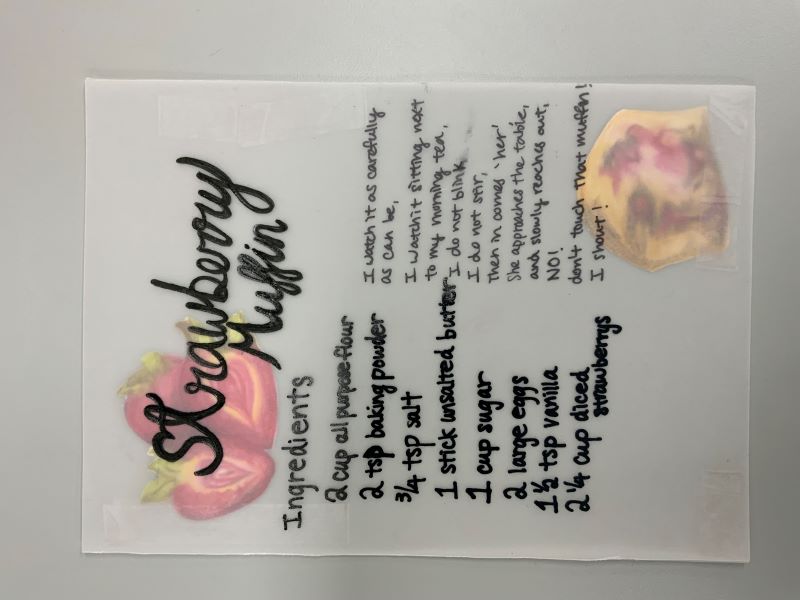 Strawberry
Muffin
Ingredients
2 cup all purpose flour
2 tsp baking powder
3/4 tsp salt
1 stick unsalted butter
1 cup sugar
2 large eggs
1 1/2 tsp vanilla
2 1/4 cup diced
strawberrys
I watch it as carefully
as can be,
I watch it sitting next
to my morning tea,
I do not blink,
I do not stir,
then in comes 'her'
She approaches the table,
and slowly reaches out,
NO!
don't touch that muffin!
I shout!